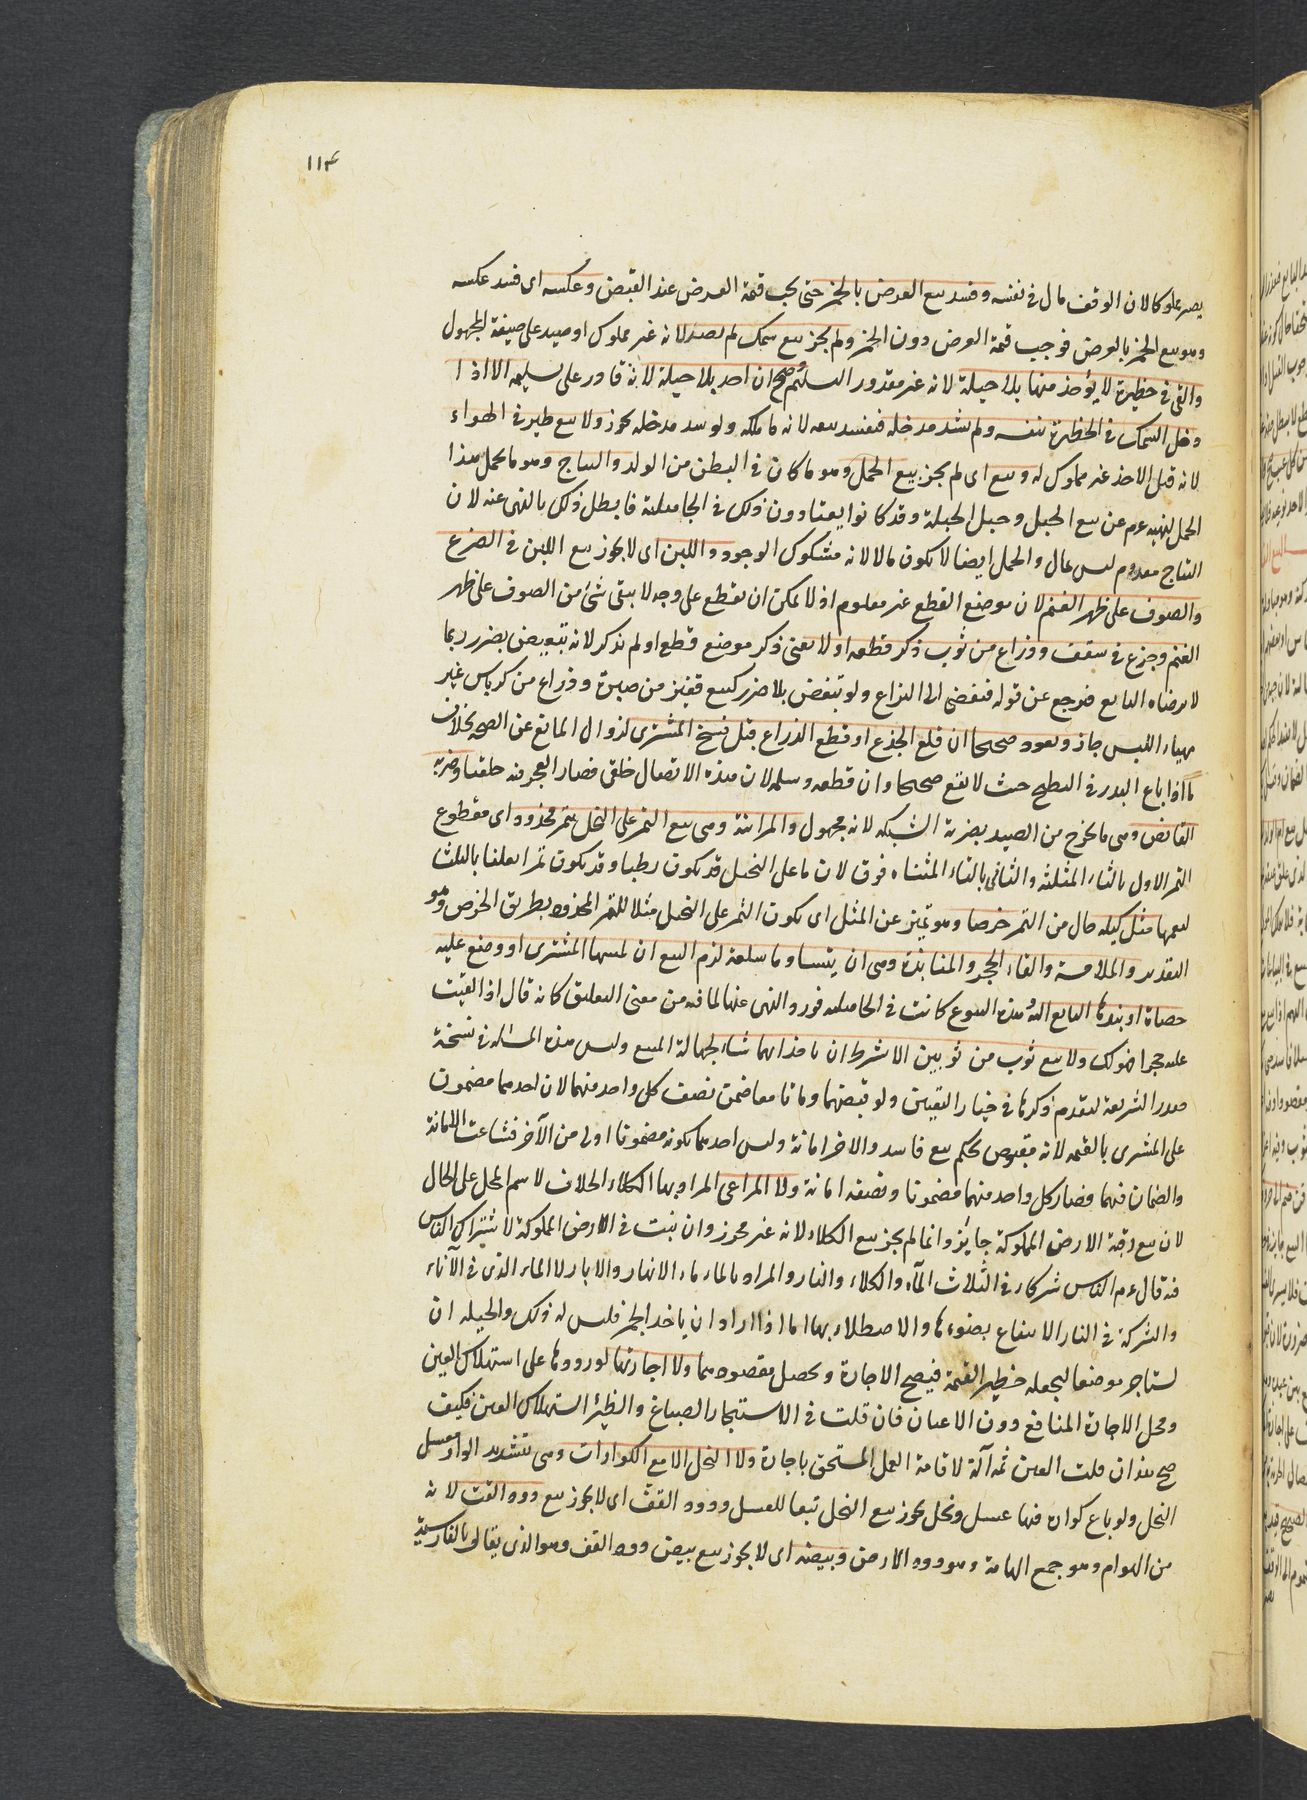 ١١٤
يصر مملوكا لان الوقف مال فى نفسه وفسد بيع العرض بالخمر حتى يجب قيمة العرض عند القبض وعكسه اى فسد عكسه
وهو بيع الخمر بالعرض فوجب قيمة العرض دون الخمر ولم يجز بيع سمك لم يصد لانه غير مملوك او صيد على صيغة المجهول
والقى فى حظيرة لا يؤخذ منها بلا حيلة لانه غير مقدور التسليم وصح ان اخذ بلا حيلة لانه قادر على تسليمه الا اذا
دخل السمك فى الحظيرة بنفسه ولم يشد مدخله فيفسد بيعه لانه ما ملكه ولو سد مدخله يجوز ولا بيع طير فى الهواء
لانه قبل الاخذ غير مملوك له وبيع اى لم يجز بيع الحمل وهو ما كان فى البطن من الولد والنتاج وهو ما يحمل هذا
الحمل لنهيه عم عن بيع الحبل وحبل الحبلة وقد كانوا يعتادون ذلك فى الجاهلية فابطل ذلك بالنهى عنه لان
النتاج معدوم ليس بمال والحمل ايضا لا يكون مالا لانه مشكوك الوجود واللبن اى لا يجوز بيع اللبن فى الضرع
والصوف على ظهر الغنم لان موضع القطع غير معلوم اذ لا يمكن ان يقطع على وجه لا يبقى شئ من الصوف على ظهر
الغنم وجذع فى سقف وذراع من ثوب ذكر قطعه او لا يعنى ذكر موضع قطع او لم يذكر لانه تبعيض بضرر ربما
لا يرضاه البايع فيرجع عن قوله فيفضى الى النزاع ولو تبعض بلا ضرر كبيع قفيز من صبرة وذراع من كرباس غير
مهياء للبس جاز ويعود صحيحا ان قلع الجذع او قطع الذراع قبل فسخ المشترى لزوال المانع عن الصحة بخلاف
ما اذا باع البذر فى البطيخ حيث لا يقع صحيحا وان قطعه وسلمه لان هذه الاتصال خلقى فصار العجز فيه خلقيا وضربة
القانص وهى ما يخرج من الصيد بضربة الشبكة لانه مجهول والمزابنة وهى بيع الثمر على النخل بتمر مجذوذ اى مقطوع
الثمر الاول بالثاء المثلثة والثانى بالتاء المثناه فوق لان ما على النخل قد يكون رطبا وقد يكون تمرا بالمثلث
ليعمها مثل كيله حال من الثمر خرصا وهو تمييز عن المثل اى يكون الثمر على النخل مثلا للتمر المجذوذ بطريق الخرص وهو
التقدير والملامسة والقاء الحجر والمنابذة وهى ان يتساوما سلعة لزم البيع ان لمسها المشترى او وضع عليه
حصاة او نبذها البايع اليه هذه البيوع كانت فى الجاهلية فورد النهى عنها لما فيه من معنى التعليق كانه قال اذا القيت
عليه حجرا فهو لك ولا بيع ثوب من ثوبين الا بشرط ان ياخذ ايهما شاء لجهالة المبيع وليس هذه المسئلة فى نسخة
صدر الشريعة لتقدم ذكرها فى خيار التعيين ولو قبضهما وماتا معا ضمن نصف كل واحد منهما لان احدهما مضمون
على المشترى بالقيمة لانه مقبوض بحكم بيع فاسد والاخر امانة وليس احدهما بكونه مضمونا اولى من الآخر فشاعت الامانة
والضمان فيهما فصار كل واحد منهما مضمونا ونصفه امانة ولا المراعى المراد بها الكلاء اطلاقا لاسم المحل على الحال
لان بيع رقبة الارض المملوكة جايز وانما لم يجز بيع الكلاء لانه غير محرز وان نبت فى الارض المملوكة لاشتراك الناس
فيه قال عم الناس شركاء فى الثلاث الماء والكلاء والنار والمراد بالماء ماء الانهار والابار لا الماء الذى فى الآناء
والشركة فى النار الانتفاع بضوءها والاصطلاء بها اما اذا اراد ان ياخذ الجمر فليس له ذلك والحيلة ان
يستاجر موضعا ليجعله حظيرا لغنمه فيصح الاجارة ويحصل مقصودهما ولا اجارتها لورودها على استهلاك العين
ومحل الاجارة المنافع دون الاعيان فان قلت فى الاستيجار الصباغ والظئر استهلاك العين فكيف
صح هذان قلت العين ثمه آلة لاقامة العمل المستحق باجارة ولا النحل الا مع الكوارات وهى بتشديد الواو معسل
النحل ولو باع كوارة فيها عسل ونحل يجوز بيع النحل تبعا للعسل ودود القز اى لا يجوز بيع دود القز لانه
من الهوام وهو جمع الهامة وهو دود الارض وبيضه اى لا يجوز بيع بيض دود القز وهو الذى يقال بالفارسية